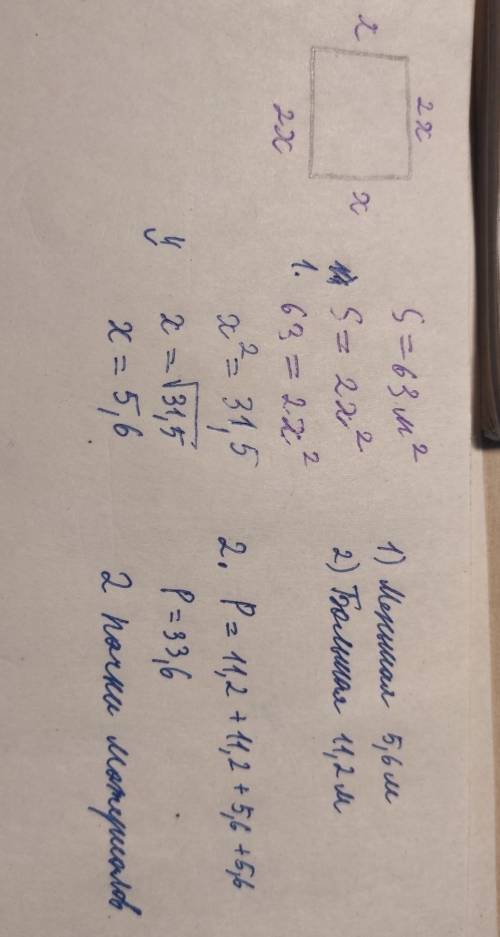 x
2x
2x
x
S = 63 м²
S = 2x²
1. 63 = 2x²
x² = 31,5
x = √31,5
x = 5,6
1) Меньшая 5,6 м
2) Большая 11,2 м
2. P = 11,2 + 11,2 + 5,6 + 5,6
P = 33,6
2 пачки материалов